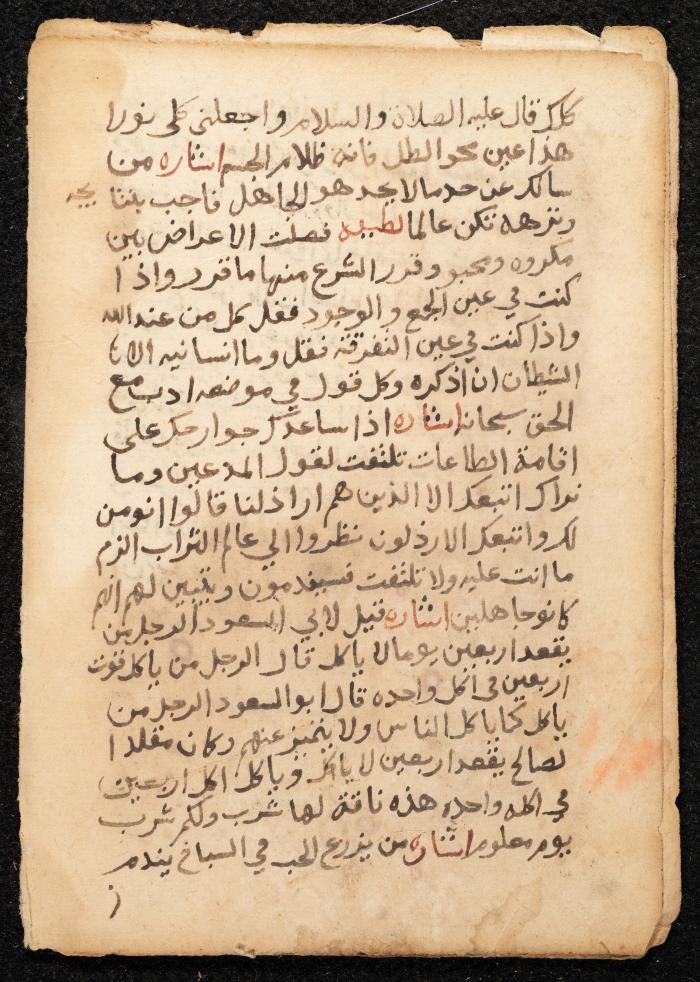 كذلك قال عليه الصلاة والسلام واجعلني كلي نورا
هذا عين محو الظل فانه ظلام الجسم اشاره من
سالك عن حد مالا يحد هو الجاهل فاجب بننا
ونزهه تكن عالما لطيفه فصلت الاعراض بين
مكروه ومحبو وقدر الشرع منها ما قدر واذا
كنت في عين الجمع والوجود فقل كل من عند الله
واذا كنت في عين التفرقة فقل وما انسانيه الا
الشيطان ان اذكره وكل قول في موضعه ادب مع
الحق سبحانه اشاره اذا ساعدك جوارحك على
اقامة الطاعات تلتفت لقول المدعين وما
نراك اتبعك الا الذين هم اراذلنا قالوا انومن
لك واتبعك الارذلون نظروا الي عالم التراب الزم
ما انت عليه ولا تلتفت فسيندمون ويتبين لهم انهم
كانو جاهلين اشاره قيل لابي السعود الرجل من
يقعد اربعين يوما لا ياكل قال الرجل من ياكل قوت
اربعين في اكل واحده قال ابو السعود الرجل من
ياكل كما ياكل الناس ولا يتميز عنهم وكان مقلدا
لصالح يقعد اربعين لا ياكل وياكل اكل اربعين
في اكله واحده هذه ناقة لها شرب ولكم شرب
يوم معلوم اشاره من يزرع الحب في السباخ يندم